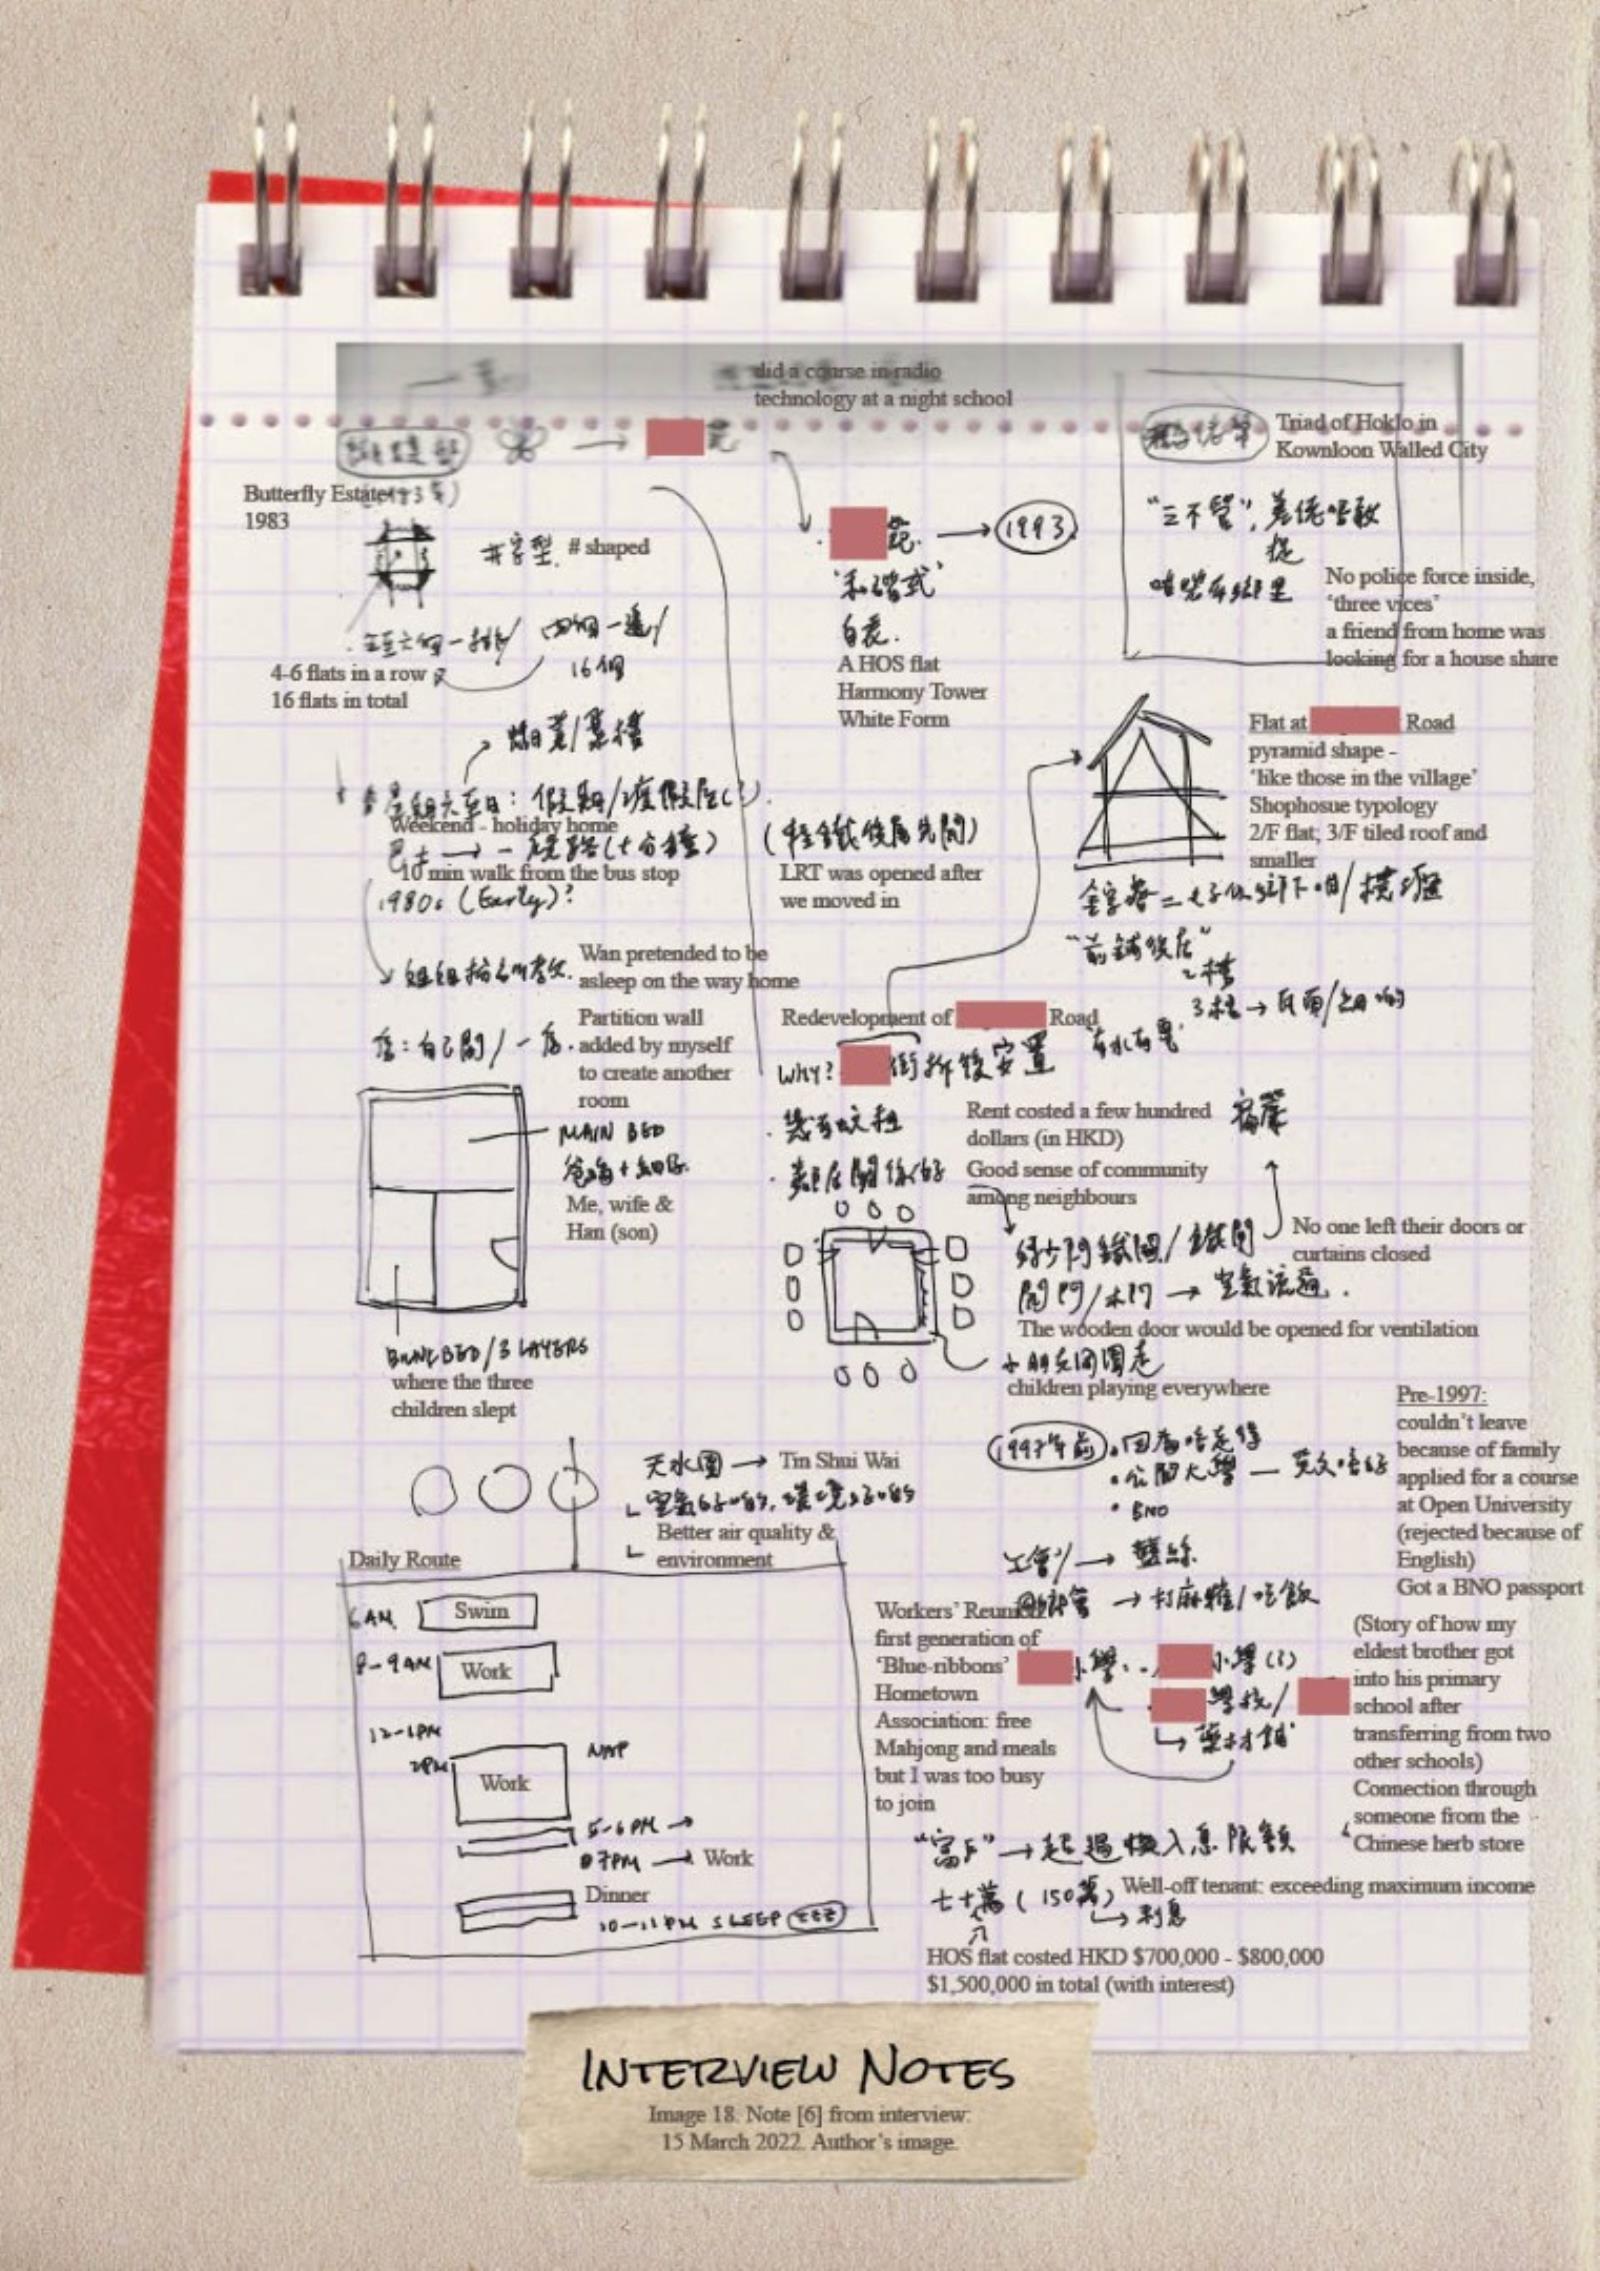 did a course in radio
technology at a night school
Triad of Hoklo in
Kownloon Walled City
Butterfly Estate
1983
井字型. # shaped
4-6 flats in a row
16 flats in total
16個
→ 1993
'和諧式'
白表.
A HOS flat
Harmony Tower
White Form
"三不管", 差佬唔敢
捉
No police force inside,
'three vices'
a friend from home was
looking for a house share
Flat at
Road
pyramid shape -
'like those in the village'
Shophosue typology
2/F flat; 3/F tiled roof and
smaller
Weekend - holiday home
10 min walk from the bus stop
1980s (Early)?
(輕鐵後尾先開)
LRT was opened after
we moved in
"前鋪後居"
2樓
3樓 → 瓦頂
Wan pretended to be
asleep on the way home
Partition wall
added by myself
to create another
room
MAIN BED
Me, wife &
Han (son)
BUNK BED / 3 LAYERS
where the three
children slept
Redevelopment of
Road
WHY?
街拆後安置
幾百蚊租
Rent costed a few hundred
dollars (in HKD)
窗簾
鄰居關係好
Good sense of community
among neighbours
No one left their doors or
curtains closed
開門/木門 → 空氣流通.
The wooden door would be opened for ventilation
小朋友周圍走
children playing everywhere
天水圍 → Tin Shui Wai
Better air quality &
environment
1997年前
公開大學 — 英文唔好
BNO
Pre-1997:
couldn't leave
because of family
applied for a course
at Open University
(rejected because of
English)
Got a BNO passport
Daily Route
6AM
Swim
8-9AM
Work
12-1PM
2PM
NAP
Work
5-6PM →
7PM → Work
Dinner
10-11PM SLEEP zzz
工會 → 藍絲
同鄉會 → 打麻雀/吃飯
Workers' Reunion:
first generation of
'Blue-ribbons'
Hometown
Association: free
Mahjong and meals
but I was too busy
to join
小學
小學(?)
學校/
藥材鋪
(Story of how my
eldest brother got
into his primary
school after
transferring from two
other schools)
Connection through
someone from the
Chinese herb store
"富戶" → 超過入息限額
Well-off tenant: exceeding maximum income
七十萬 (150萬)
利息
HOS flat costed HKD $700,000 - $800,000
$1,500,000 in total (with interest)
INTERVIEW NOTES
Image 18. Note [6] from interview:
15 March 2022. Author's image.